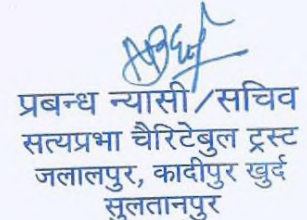 प्रबन्ध न्यासी/सचिव
सत्यप्रभा चैरिटेबुल ट्रस्ट
जलालपुर, कादीपुर खुर्द
सुलतानपुर